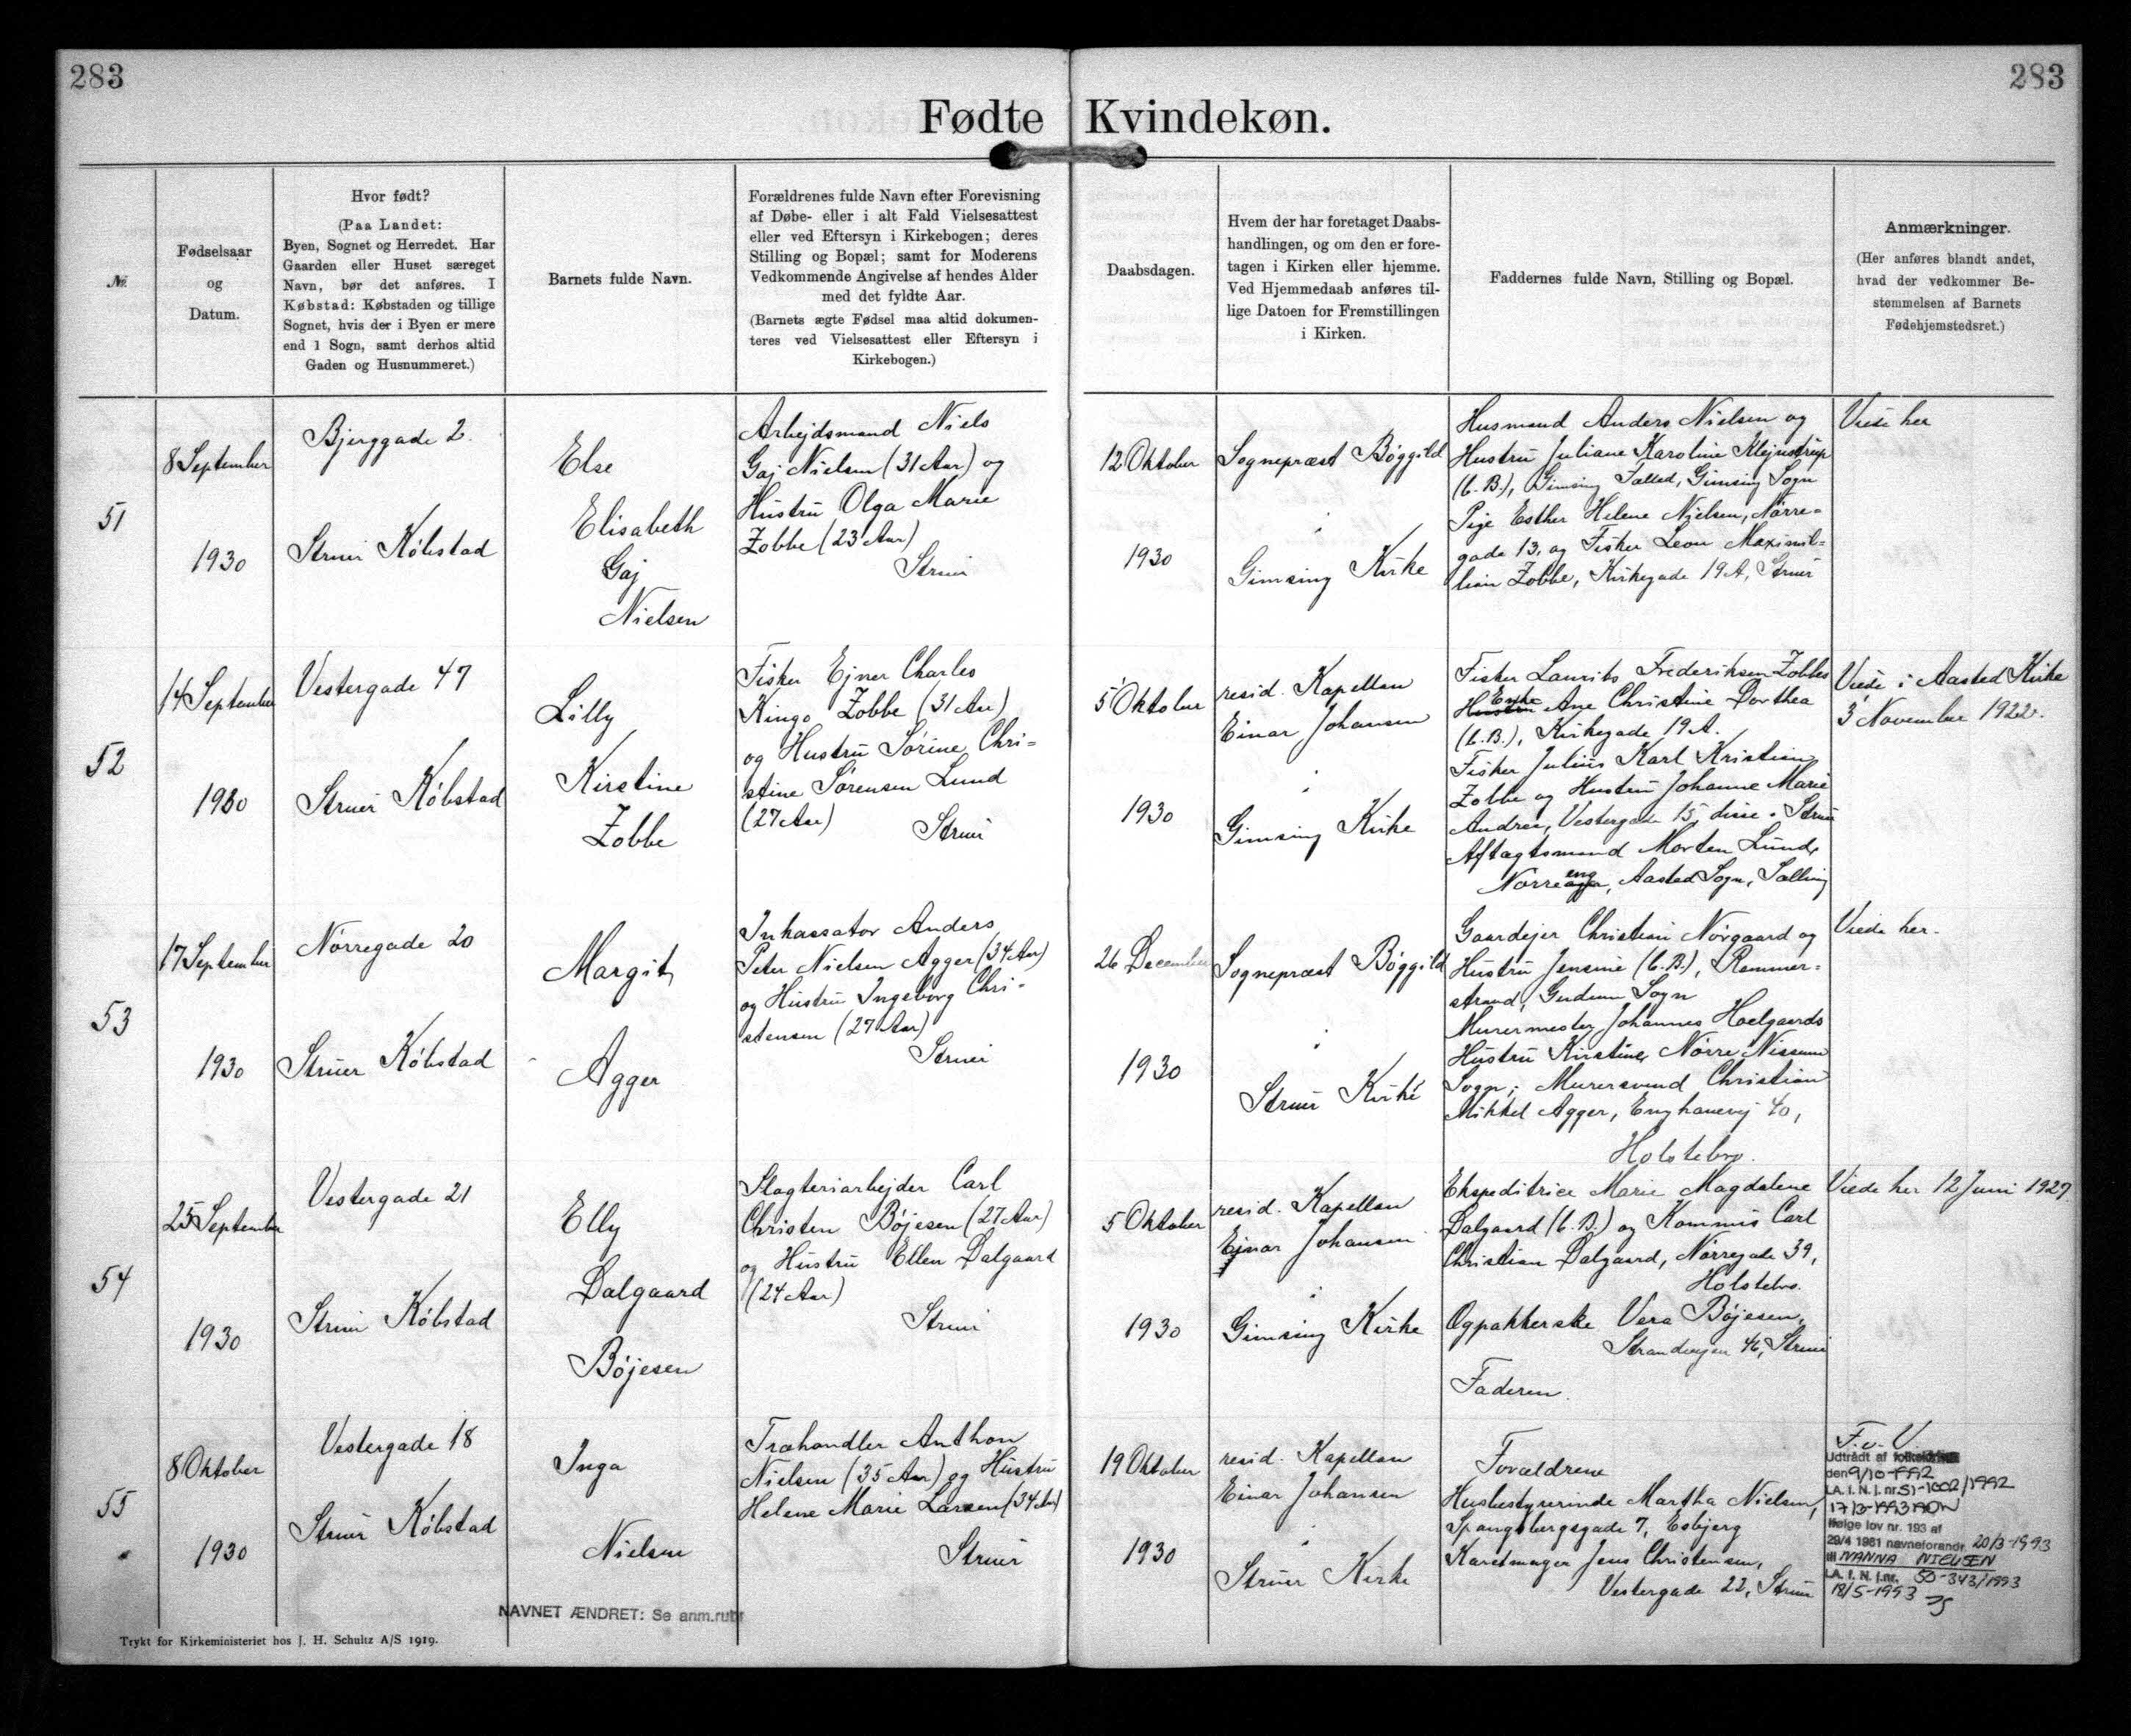 283
283
Fødte Kvindekøn.
Nr.
Fødselsaar
og
Datum.
Hvor født?
(Paa Landet:
Byen, Sognet og Herredet. Har
Gaarden eller Huset særeget
Navn, bør det anføres. I
Købstad: Købstaden og tillige
Sognet, hvis der i Byen er mere
end 1 Sogn, samt derhos altid
Gaden og Husnummeret.)
Barnets fulde Navn.
Forældrenes fulde Navn efter Forevisning
af Døbe- eller i alt Fald Vielsesattest
eller ved Eftersyn i Kirkebogen; deres
Stilling og Bopæl; samt for Moderens
Vedkommende Angivelse af hendes Alder
med det fyldte Aar.
(Barnets ægte Fødsel maa altid dokumen-
teres ved Vielsesattest eller Eftersyn i
Kirkebogen.)
Daabsdagen.
Hvem der har foretaget Daabs-
handlingen, og om den er fore-
tagen i Kirken eller hjemme.
Ved Hjemmedaab anføres til-
lige Datoen for Fremstillingen
i Kirken.
Faddernes fulde Navn, Stilling og Bopæl.
Anmærkninger.
(Her anføres blandt andet,
hvad der vedkommer Be-
stemmelsen af Barnets
Fødehjemstedsret.)
51
8 September
1930
Bjerggade 2.
Struer Købstad
Else
Elisabeth
Gaj
Nielsen
Arbejdsmand Niels
Gaj Nielsen (31 Aar) og
Hustru Olga Marie
Zobbe (23 Aar)
Struer
12 Oktober
1930
Sognepræst Bøggild
i
Gimsing Kirke
Husmand Anders Nielsen og
Hustru Juliane Karoline Klejnstrup
(b. B.), Gimsing Fælled, Gimsing Sogn
Pige Esther Helene Nielsen, Nørre-
gade 13, og Fisker Leon Maximil-
lian Zobbe, Kirkegade 19 A, Struer
Viede her
52
14 September
1930
Vestergade 47
Struer Købstad
Lilly
Kirstine
Zobbe
Fisker Ejner Charles
Kingo Zobbe (31 Aar)
og Hustru Sørine Chri-
stine Sørensen Lund
(27 Aar)
Struer
5 Oktober
1930
resid. Kapellan
Einar Johansen
i
Gimsing Kirke
Fisker Laurits Frederiksen Zobbes
Enke
Hustru Ane Christine Dorthea
(b. B.), Kirkegade 19 A.
Fisker Julius Karl Kristian
Zobbe og Hustru Johanne Marie
Andrea, Vestergade 15, disse i Struer
Aftægtsmand Morten Lund,
Nørreeng, Aasted Sogn, Salling
Viede i Aasted Kirke
3 November 1922.
53
17 September
1930
Nørregade 20
Struer Købstad
Margit
Agger
Inkassator Anders
Peter Nielsen Agger (34 Aar)
og Hustru Ingeborg Chri-
stensen (27 Aar)
Struer
26 December
1930
Sognepræst Bøggild
i
Struer Kirke
Gaardejer Christian Nørgaard og
Hustru Jensine (b. B.), Remmer-
strand, Gudum Sogn
Murermester Johannes Hoelgaards
Hustru Kirstine, Nørre Nissum
Sogn; Murersvend Christian
Mikkel Agger, Enghavevej 40,
Holstebro.
Viede her.
54
25 September
1930
Vestergade 21
Struer Købstad
Elly
Dalgaard
Bøjesen
Slagteriarbejder Carl
Christen Bøjesen (27 Aar)
og Hustru Ellen Dalgaard
(24 Aar)
Struer
5 Oktober
1930
resid. Kapellan
Einar Johansen
i
Gimsing Kirke
Ekspeditrice Marie Magdalene
Dalgaard (b. B.) og Kommis Carl
Christian Dalgaard, Nørregade 39,
Holstebro.
Ogpakkerske Vera Bøjesen,
Strandvejen 46, Struer
Faderen.
Viede her 12 Juni 1927.
55
8 Oktober
1930
Vestergade 18
Struer Købstad
Inga
Nielsen
NAVNET ÆNDRET: Se anm.rubr
Træhandler Anthon
Nielsen (35 Aar) og Hustru
Helene Marie Larsen (34 Aar)
Struer
19 Oktober
1930
resid. Kapellan
Einar Johansen
i
Struer Kirke
Forældrene
Husbestyrerinde Martha Nielsen,
Spangsbergsgade 7, Esbjerg
Karetmager Jens Christensen,
Vestergade 22, Struer
F. v. V
Udtrådt af folkekirken
den 9/10-1992
LA. I. N. J. nr. 51-1002/1992
Ifølge lov nr. 193 af
29/4 1981 navneforandr. 20/3-1993
til NANNA NIELSEN
LA. I. N. J.nr. 50-343/1993
18/5-1993
Trykt for Kirkeministeriet hos J. H. Schultz A/S 1919.